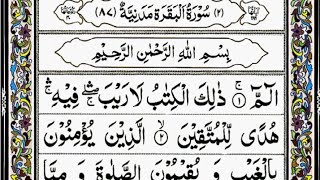 (٢) سُوْرَةُ الْبَقَرَةِ مَدَنِيَّةٌ (٨٧)
بِسْمِ اللّٰهِ الرَّحْمٰنِ الرَّحِيْمِ
الٓمّٓ ۚ ١ ذٰلِكَ الْكِتٰبُ لَا رَيْبَ ۛۚ فِيْهِ ۛۚ
هُدًى لِّلْمُتَّقِيْنَ ۙ ٢ الَّذِيْنَ يُؤْمِنُوْنَ
بِالْغَيْبِ وَ يُقِيْمُوْنَ الصَّلٰوةَ وَ مِمَّا